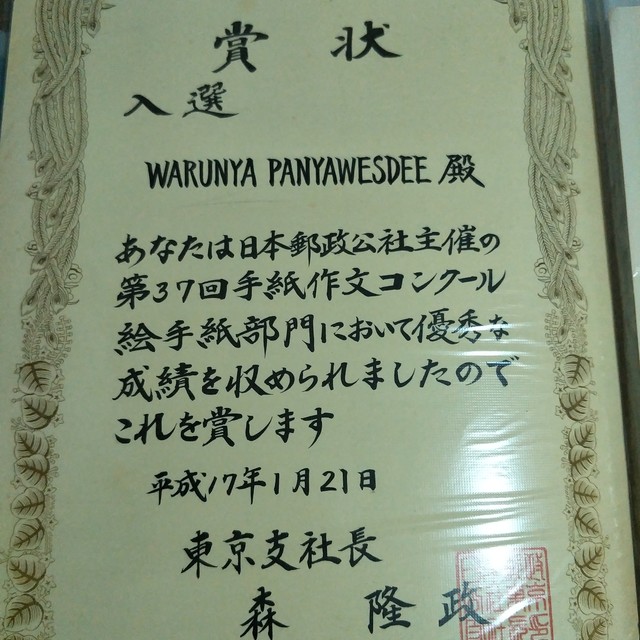 賞 状
入選
WARUNYA PANYAWESDEE 殿
あなたは日本郵政公社主催の
第37回手紙作文コンクール
絵手紙部門において優秀な
成績を収められましたので
これを賞します
平成17年1月21日
東京支社長
森 隆政